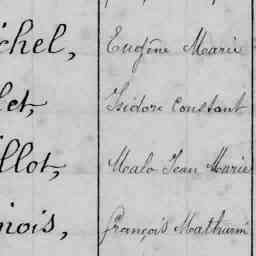 chel, Eugène Marie
let, Isidore Constant
llot, Malo Jean Marie
nois, François Mathurin